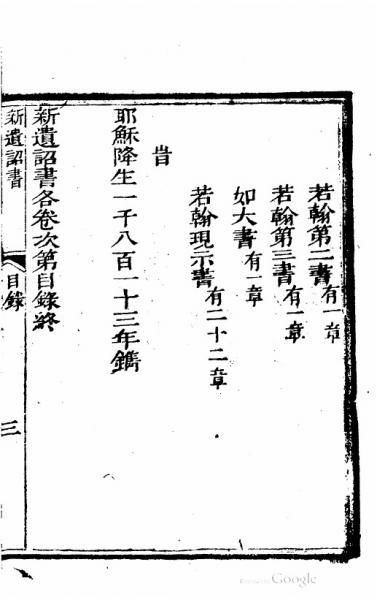 若翰第二書有一章
若翰第三書有一章
如大書有一章
若翰現示書有二十二章
旹
耶穌降生一千八百一十三年鐫
新遺詔書各卷次第目錄終
新遺詔書
目錄
三
Google